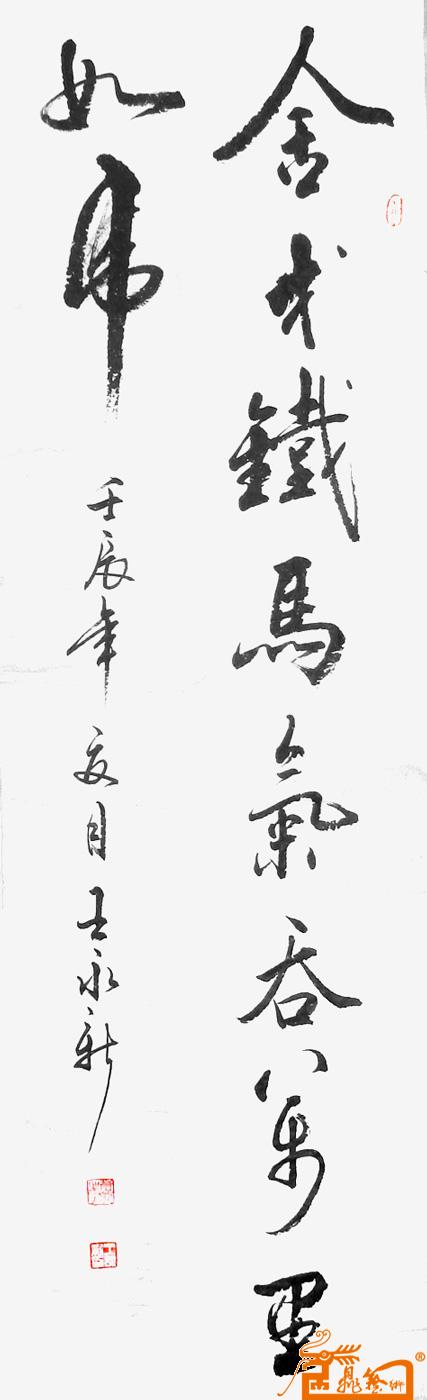 金戈鐵馬氣吞萬里
如虎
壬辰年夏月王永新